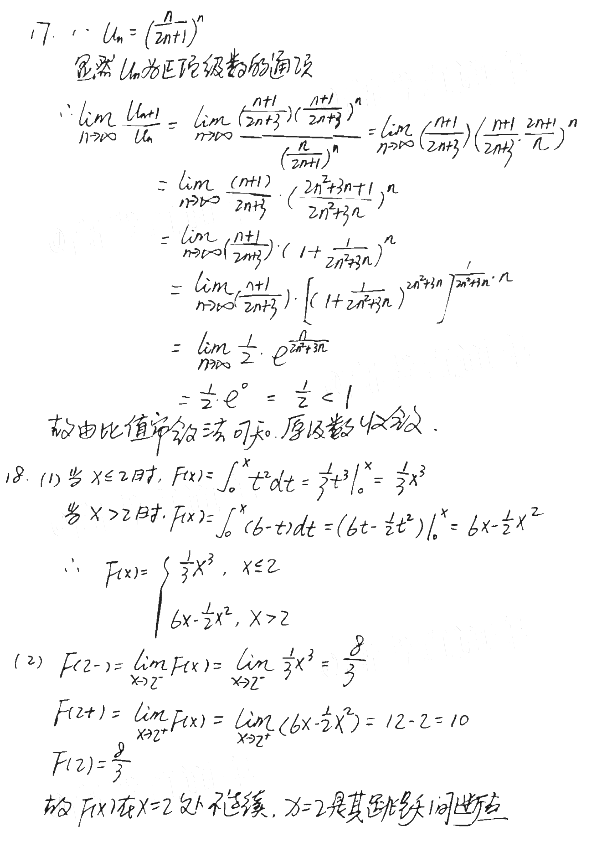 17. ∵ Uₙ = (n/(2n+1))ⁿ
显然 Uₙ为正项级数的通项
∴ lim_{n→∞} Uₙ₊₁/Uₙ = lim_{n→∞} ((n+1)/(2n+3))((n+1)/(2n+3))ⁿ / (n/(2n+1))ⁿ = lim_{n→∞} ((n+1)/(2n+3)) ((n+1)/(2n+3) · (2n+1)/n)ⁿ
= lim_{n→∞} (n+1)/(2n+3) · ((2n²+3n+1)/(2n²+3n))ⁿ
= lim_{n→∞} ((n+1)/(2n+3)) · (1 + 1/(2n²+3n))ⁿ
= lim_{n→∞} ((n+1)/(2n+3)) · [(1 + 1/(2n²+3n))^{2n²+3n}]^{1/(2n²+3n) · n}
= lim_{n→∞} 1/2 · e^{n/(2n²+3n)}
= 1/2 · e⁰ = 1/2 < 1
故由比值审敛法可知. 原级数收敛.
18. (1) 当 x≤2时, F(x) = ∫₀ˣ t²dt = 1/3 t³|₀ˣ = 1/3 x³
当 x>2时. F(x) = ∫₀ˣ (6-t)dt = (6t - 1/2 t²)|₀ˣ = 6x - 1/2 x²
∴ F(x) = { 1/3 x³, x≤2
6x - 1/2 x², x>2
(2) F(2-) = lim_{x→2⁻} F(x) = lim_{x→2⁻} 1/3 x³ = 8/3
F(2+) = lim_{x→2⁺} F(x) = lim_{x→2⁺} (6x - 1/2 x²) = 12-2 = 10
F(2) = 8/3
故 F(x)在x=2处不连续, x=2是其跳跃间断点